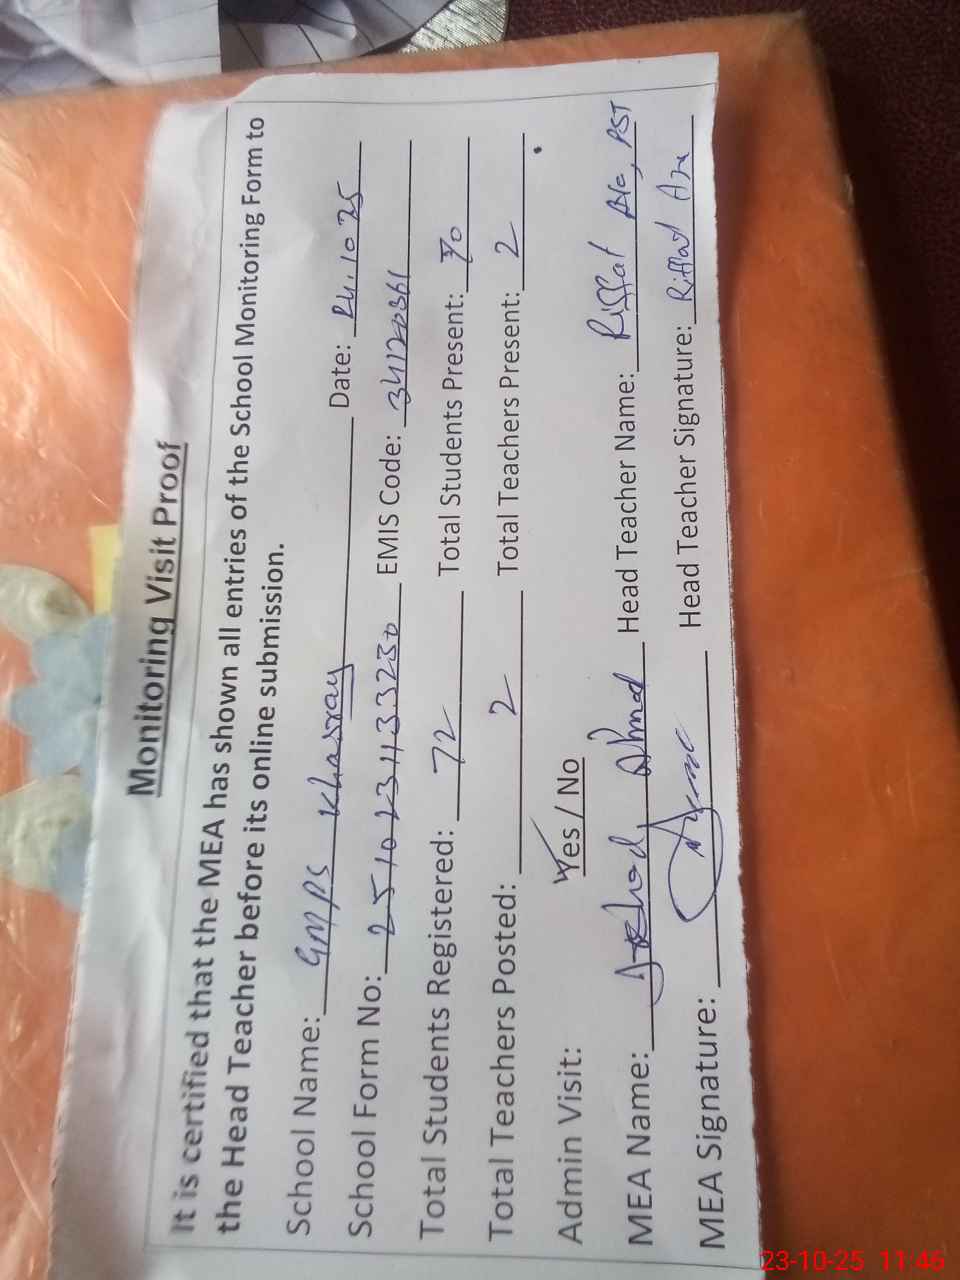 Monitoring Visit Proof
It is certified that the MEA has shown all entries of the School Monitoring Form to
the Head Teacher before its online submission.
School Name: GMPS Khasray Date: 24.10 25
School Form No: 251023113230 EMIS Code: 34120361
Total Students Registered: 72 Total Students Present: 70
Total Teachers Posted: 2 Total Teachers Present: 2
Admin Visit: Yes / No
MEA Name: Arshad Ahmad Head Teacher Name: Riffat PST
MEA Signature: Head Teacher Signature: Riffat Ara
23-10-25 11:46